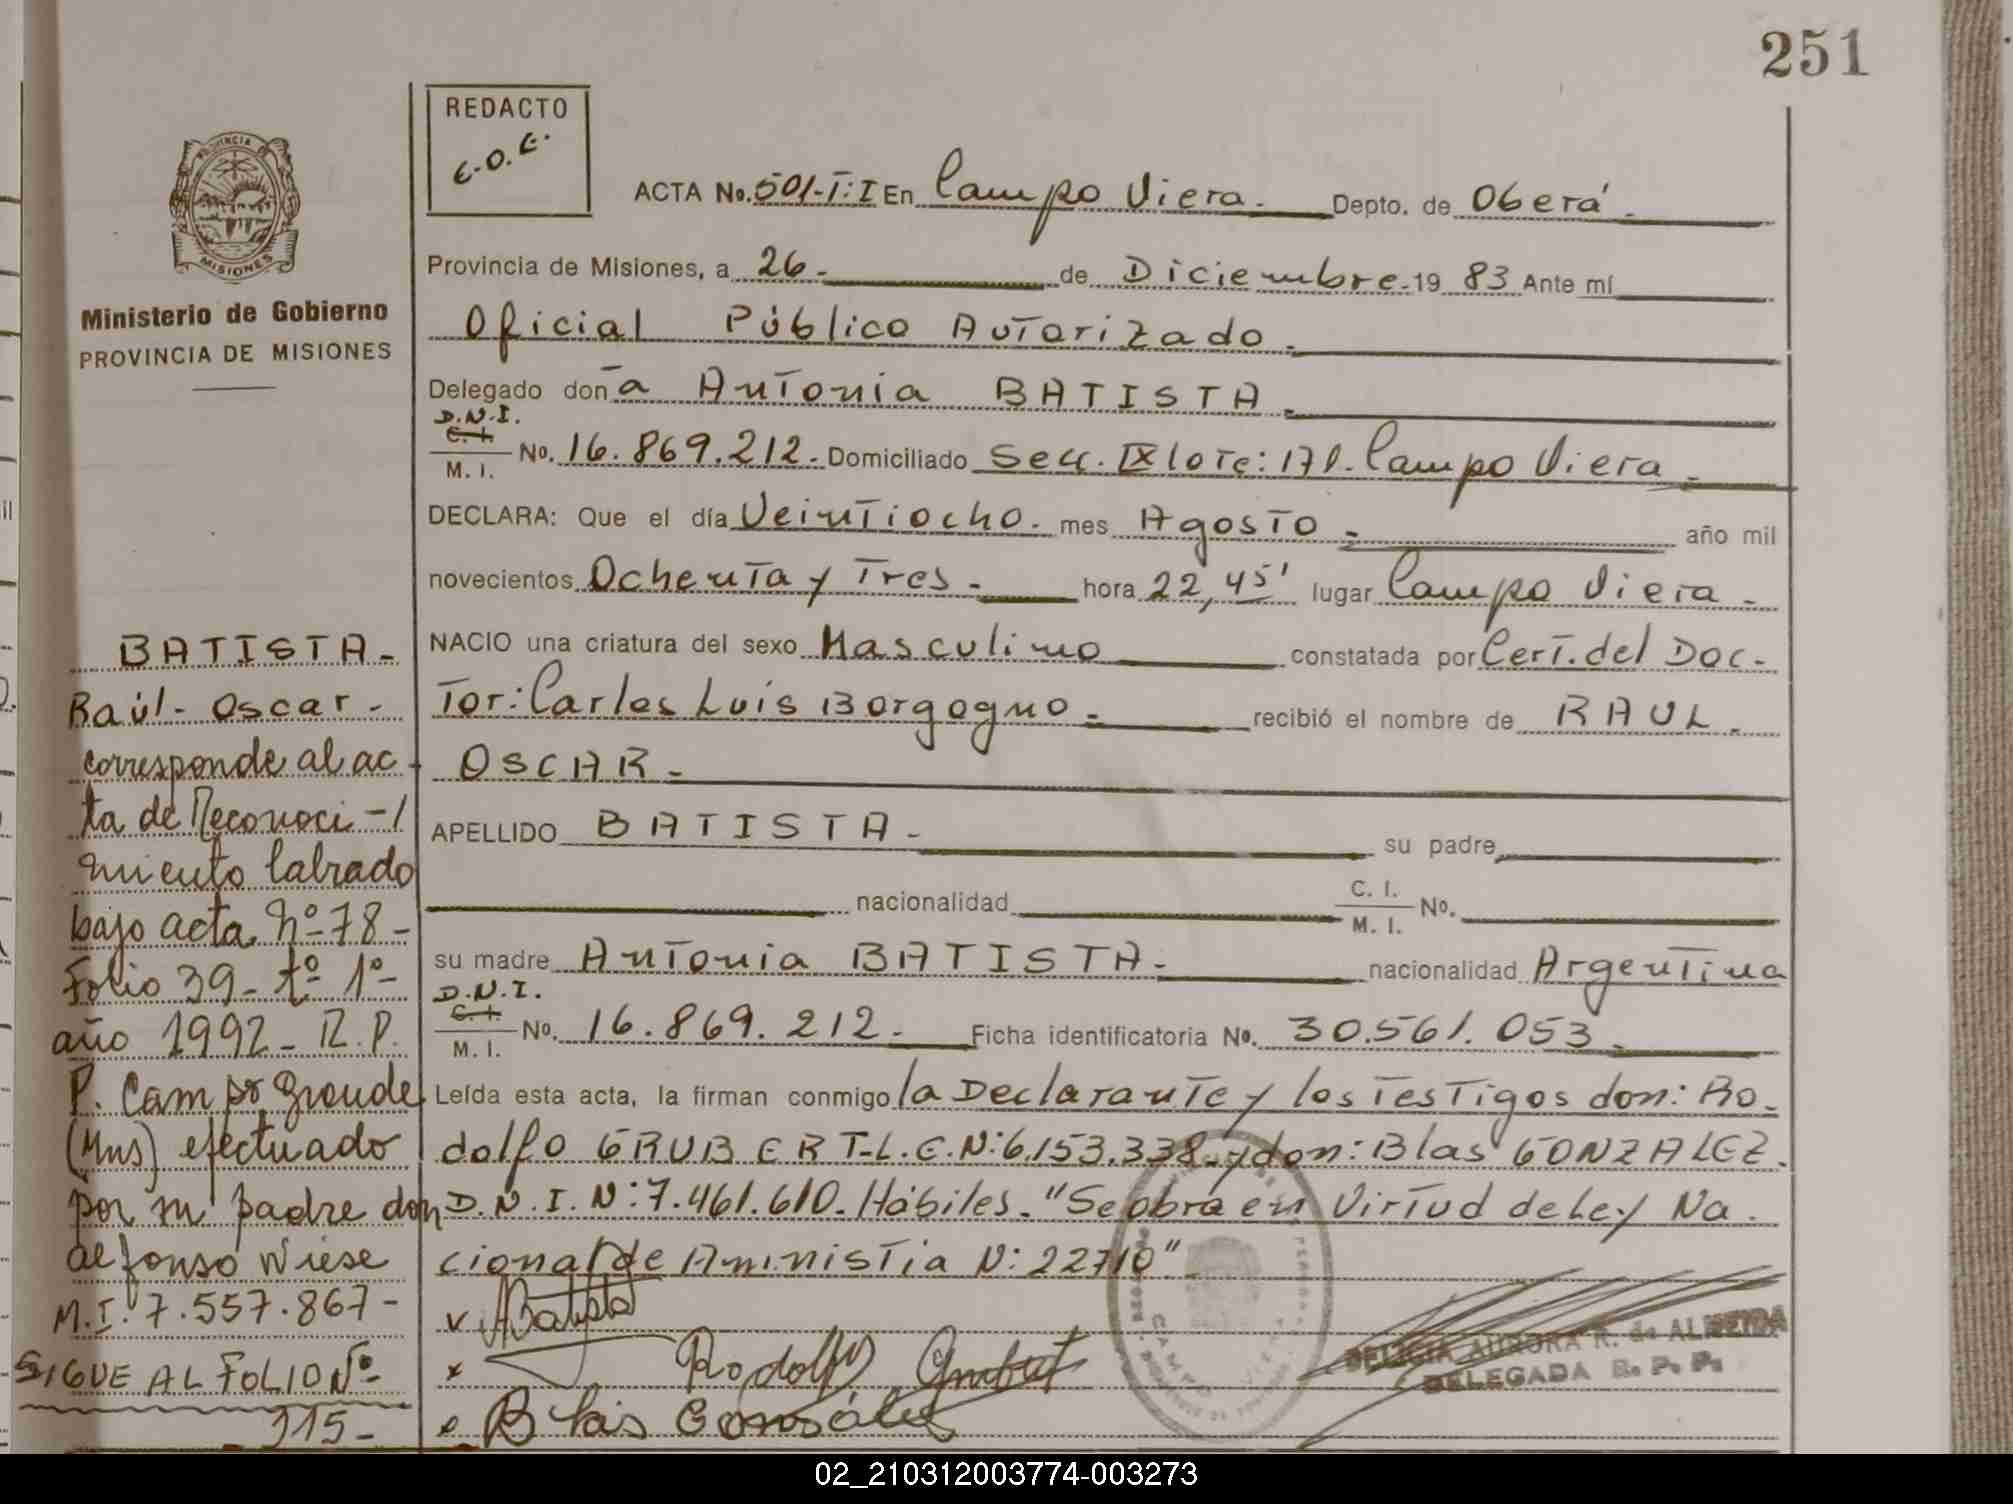 251
REDACTO
E.O.E.
ACTA No. 501-T:I En Campo Viera.- Depto. de Oberá.-
Provincia de Misiones, a 26.- de Diciembre.- 19 83 Ante mí
Oficial Público Autorizado.-
Delegado doña Antonia BATISTA.-
D.N.I.
C. I.
M. I.
No. 16.869.212.- Domiciliado Secc. IX lote: 171. Campo Viera.-
DECLARA: Que el día Veintiocho.- mes Agosto.- año mil
novecientos Ochenta y Tres.- hora 22,45' lugar Campo Viera.-
NACIO una criatura del sexo Masculino constatada por Cert. del Doc-
tor: Carlos Luis Borgogno.- recibió el nombre de RAUL.-
OSCAR.-
APELLIDO BATISTA.- su padre
nacionalidad C. I. M. I. No.
su madre Antonia BATISTA.- nacionalidad Argentina
D.N.I.
C. I.
M. I.
No. 16.869.212.- Ficha identificatoria No. 30.561.053.-
Leída esta acta, la firman conmigo la Declarante y los Testigos don: Ro-
dolfo GRUBERT-L.E.N:6.153.338.-y don: Blas GONZALEZ.
D.N.I.N:7.461.610.Hábiles.-"Se obra en Virtud de Ley Na-
cional de Aministia N:22710"
v ABatista
x Rodolfo Grubert
x Blas Gonsáles
DELICIA AURORA R. de ALMEIDA
DELEGADA R. P. P.
CAMPO VIERA
PROVINCIA DE
MISIONES
Ministerio de Gobierno
PROVINCIA DE MISIONES
BATISTA-
Raúl- Oscar-
corresponde al ac-
ta de Reconoci-/
miento labrado
bajo acta Nº 78-
Folio 39- tº 1º-
año 1992- R.P.
P. Campo Grande
(Mns) efectuado
por su padre don
Alfonso Wiese
M.I. 7.557.867-
SIGUE AL FOLIO Nº
315-
02_210312003774-003273